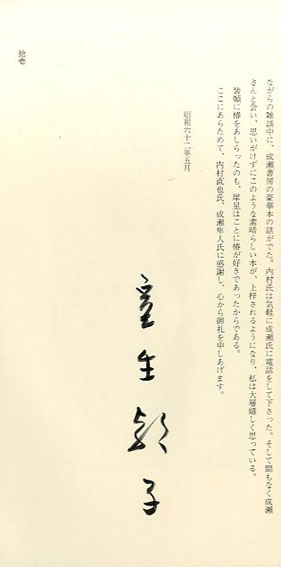 ながらの雑談中に、成瀬書房の豪華本の話がでた。内村氏は気軽に成瀬氏に電話をして下さった。そして間もなく成瀬
さんと会い、思いがけずにこのような素晴らしい本が、上梓されるようになり、私は大層嬉しく思っている。
装幀に椿をあしらったのも、犀星はことに椿が好きであったからである。
ここにあらためて、内村直也氏、成瀬隼人氏に感謝し、心から御礼を申しあげます。
昭和六十二年五月
室生朝子
拾壱